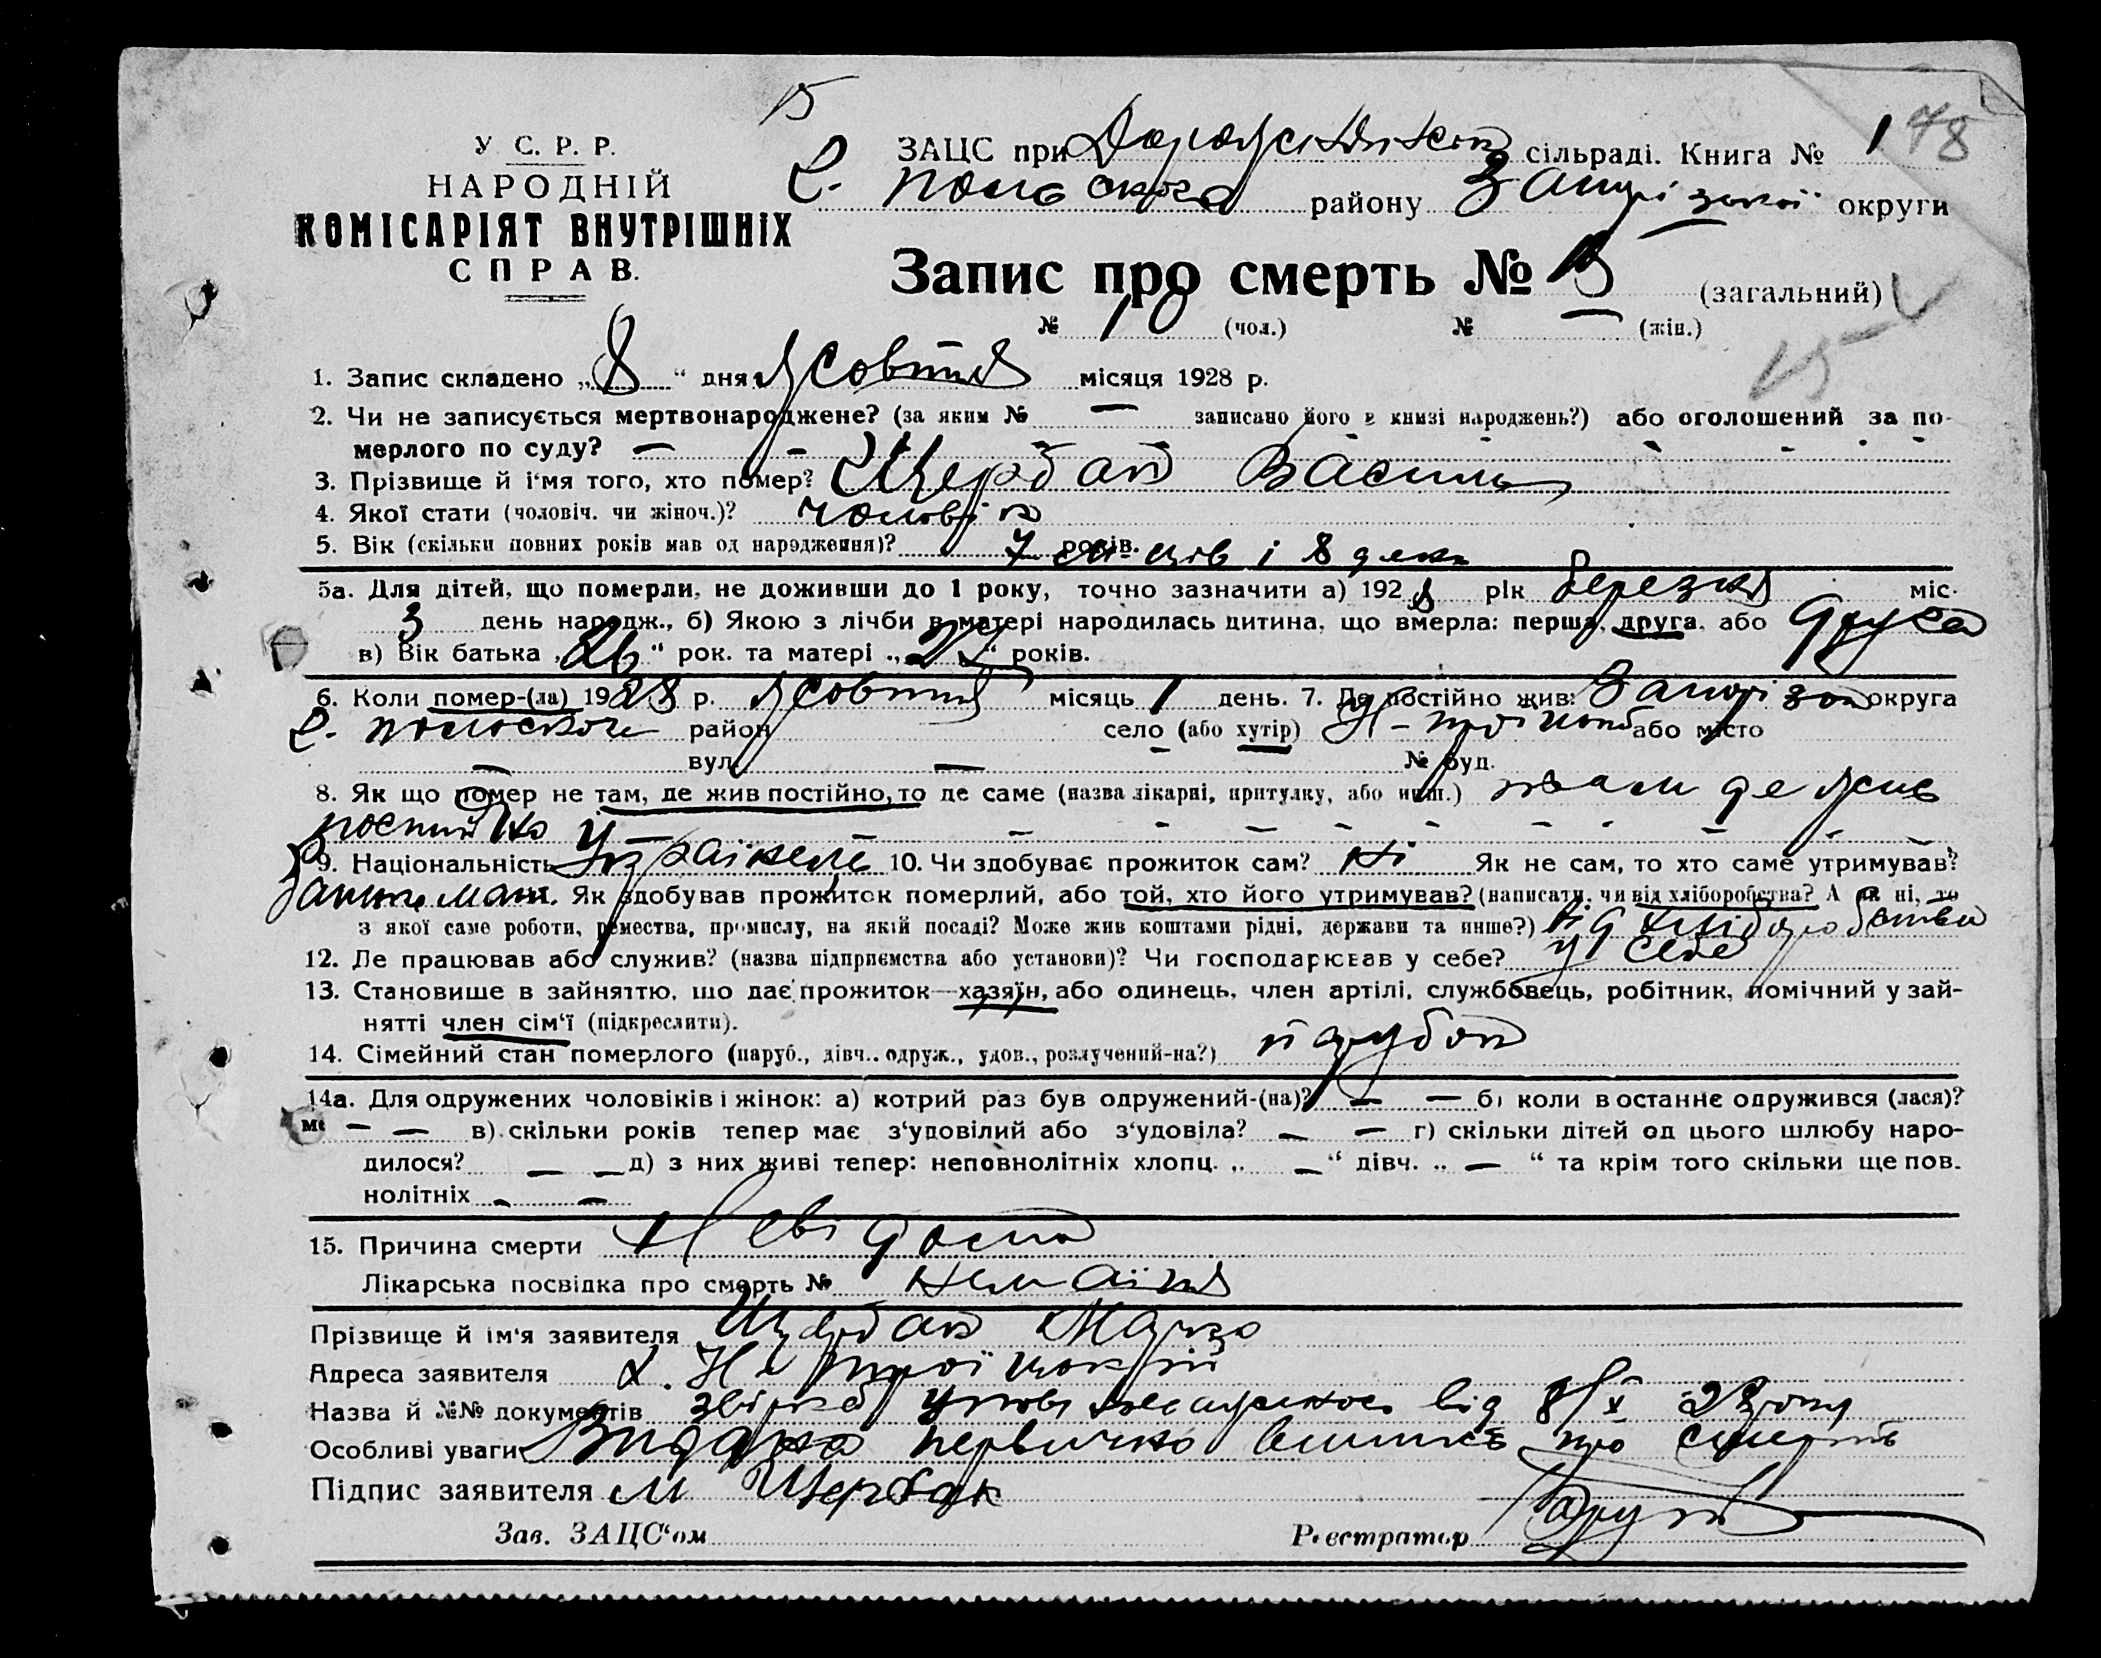 15
У. С. Р. Р.
НАРОДНІЙ
КОМІСАРІЯТ ВНУТРІШНІХ
СПРАВ.
ЗАЦС при сільраді. Книга № 1 48
району Запорізької округи
Запис про смерть № 15 (загальний)
№ 10 (чол.) № — (жін.)
15
1. Запис складено „8“ дня жовтня місяця 1928 р.
2. Чи не записується мертвонароджене? (за яким № — записано його в книзі народжень?) або оголошений за по-
мерлого по суду? — —
3. Прізвище й і'мя того, хто помер? Щербак Василь
4. Якої стати (чоловіч. чи жіноч.)? чоловік
5. Вік (скільки повних років мав од народження)? 7 років. місяців і 8 днів
5а. Для дітей, що померли, не доживши до 1 року, точно зазначити а) 1928 рік березня міс.
3 день народж., б) Якою з лічби в матері народилась дитина, що вмерла: перша, друга, або друга
в) Вік батька „26“ рок. та матері „ “ років.
6. Коли помер-(ла) 1928 р. жовтня місяць 1 день. 7. Де постійно жив: Запорізьк округа
район село (або хутір) або місто
— вул. — № буд.
8. Як що помер не там, де жив постійно, то де саме (назва лікарні, притулку, або инш.) там де жив
постійно
9. Національність Українець 10. Чи здобуває прожиток сам? ні Як не сам, то хто саме утримував?
мати. Як здобував прожиток померлий, або той, хто його утримував? (написати, чи від хліборобства? А як ні, то
з якої саме роботи, ремества, промислу, на якій посаді? Може жив коштами рідні, держави та инше?) від хліборобства
12. Де працював або служив? (назва підприємства або установи)? Чи господарював у себе? у себе
13. Становище в зайняттю, що дає прожиток—хазяїн, або одинець, член артілі, службовець, робітник, помічний у зай-
нятті член сім'ї (підкреслити).
14. Сімейний стан померлого (паруб., дівч., одруж., удов., розлучений-на?) парубок
14а. Для одружених чоловіків і жінок: а) котрий раз був одружений-(на)? — — б) коли в останнє одружився (лася)?
— — в) скільки років тепер має з'уповілий або з'удовіла? — — г) скільки дітей од цього шлюбу наро-
дилося? — — д) з них живі тепер: неповнолітніх хлопц. „ —“ дівч. „ — “ та крім того скільки ще пов.
нолітніх — —
15. Причина смерти Невідома
Лікарська посвідка про смерть № немає
Прізвище й ім'я заявителя Щербак
Адреса заявителя
Назва й №№ документів від 8/X 28 року
Особливі уваги Видано первичну випись про смерть
Підпис заявителя М Щербак
Зав. ЗАЦС'ом Реєстратор